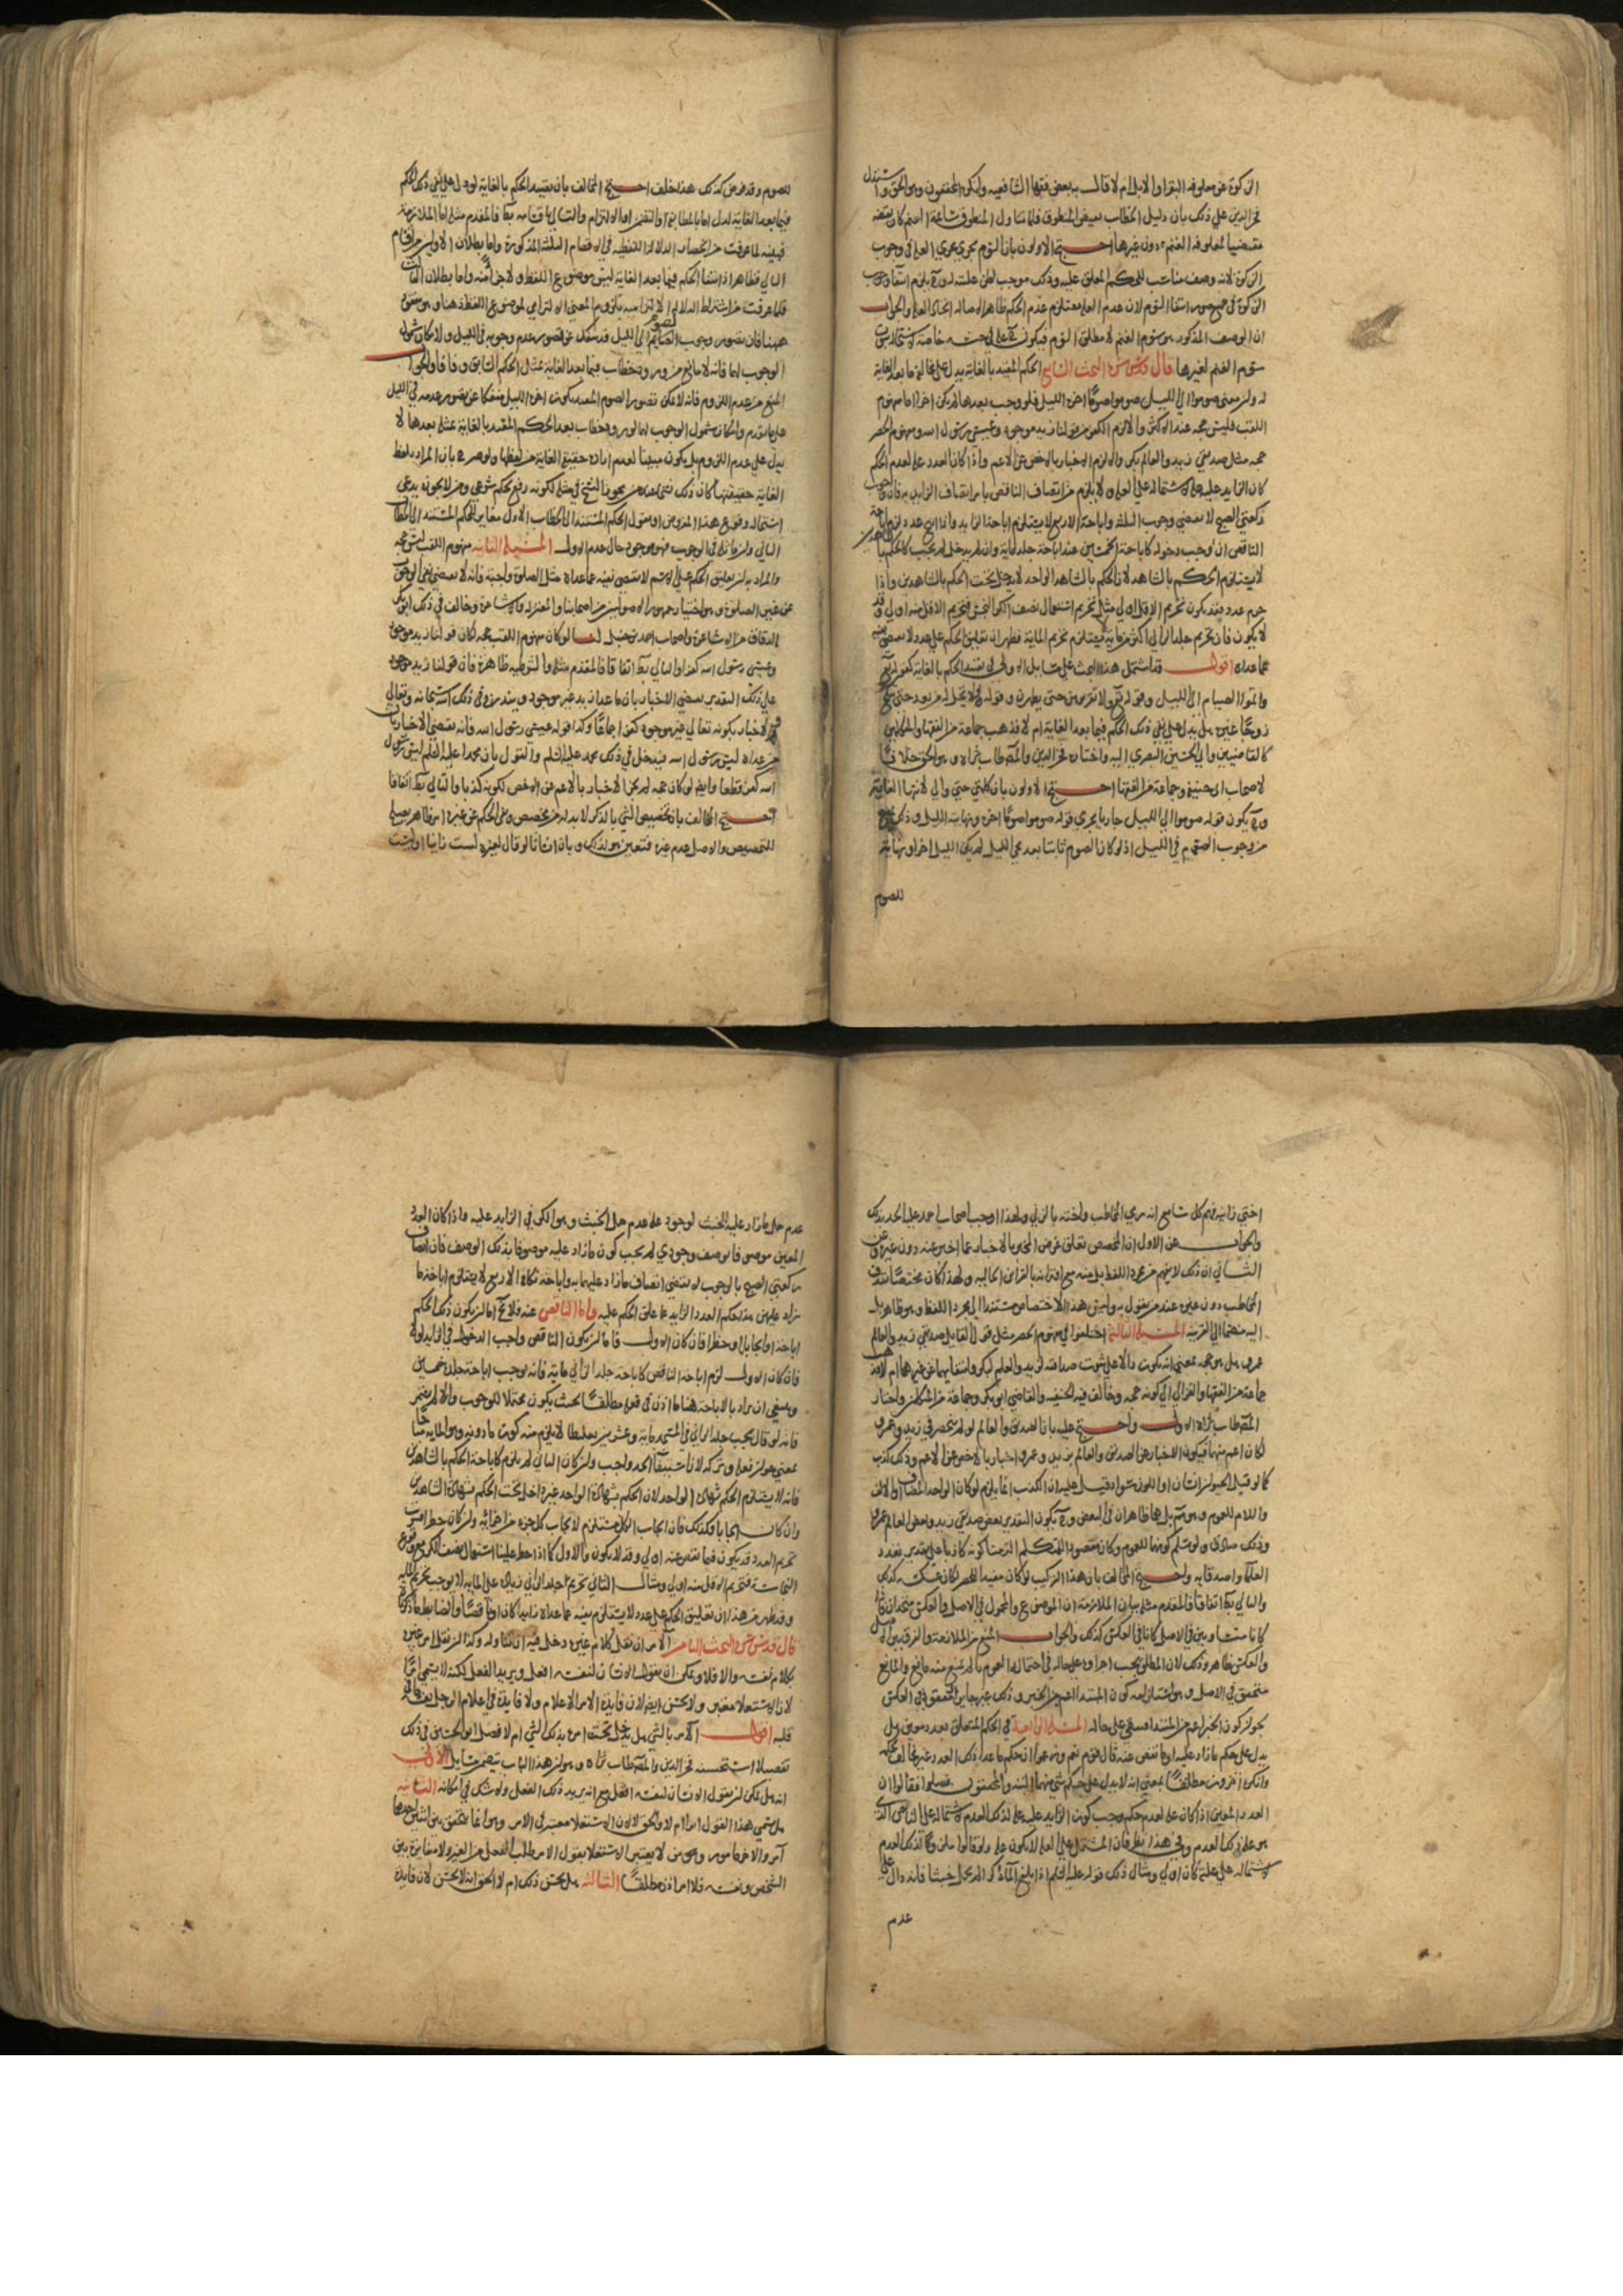 الزكوة عن معلوفة البقر والابل ام لا قال به بعض فقهاء الشافعية وانكره المحققون وهو الحق واستدل
فخر الدين على ذلك بان دليل الخطاب نقيض المنطوق فلما تناول المنطوق سائمة الغنم كان نقيضه
مقتضيا لمعلوفة الغنم دون غيرها احتج الاولون بان السوم يجري مجرى العلة في وجوب
الزكوة لانه وصف مناسب للحكم المعلق عليه وذلك موجب لظن علته له وح يلزم انتفاء وجوب
الزكوة في جميع صور انتفاء السوم لان عدم العلة مستلزم عدم الحكم ظاهرا لاصالة اتحاد العلة والجواب
ان الوصف المذكور هو سوم الغنم لا مطلق السوم فيكون
سوم الغنم لغيرها قال قدس سره البحث السابع الحكم المقيد بالغاية يدل على مخالفة ما بعد الغاية
له ولان معنى صوموا الى الليل صوموا صوما اخره الليل فلو وجب بعدها لم يكن اخرا اما مفهوم
اللقب فليس حجة عند الاكثر والا لزم الكفر من قولنا زيد موجود وعيسى رسول الله ومفهوم الحصر
حجة مثل صديقي زيد والعالم بكر والا لزم الاخبار بالاخص عن الاعم واذا كان العدد علة لعدم الحكم
كان الزايد عليه علة لاشتماله على العلة ولا يلزم من اتصاف الناقص بامر اتصاف الزايد به فان وجوب
ركعتي الصبح لا يقتضي وجوب الثلث واباحة الاربع لا يستلزم اباحة الزايد واذا ابيح عدد لزم اباحة
الناقص ان وجب دخوله كاباحة الخمسين عند اباحة جلد ماية وان لم يدخل لم يجب كالحكم بالشاهدين
لا يستلزم الحكم بالشاهد لان الحكم بالشاهد الواحد لا يدخل تحت الحكم بالشاهدين واذا
حرم عدد فقد يكون تحريم الاقل اولى مثل تحريم استعمال نصف الكر النجس فتحريم الاقل منه اولى وقد
لا يكون فان تحريم جلد الزاني اكثر من ماية لا يستلزم تحريم الماية فظهر ان تعليق الحكم على عدد لا يقتضي نفيه
عما عداه اقول قد اشتمل هذا البحث على مسايل الاولى في تقييد الحكم بالغاية كقوله تع
واتموا الصيام الى الليل وقوله تع ولا تقربوهن حتى يطهرن وقوله فلا تحل له من بعد حتى تنكح
زوجا غيره هل يدل على نفي ذلك الحكم فيما بعد الغاية ام لا فذهب جماعة من الفقهاء والمتكلمين
كالقاضيين وابي الحسين البصري اليه واختاره فخر الدين والمص طاب ثراه وهو الحق خلافا
لاصحاب ابي حنيفة وجماعة من الفقهاء احتج الاولون بان كلمتي حتى والى لانتهاء الغاية
وح يكون قوله صوموا الى الليل جاريا مجرى قوله صوموا صوما اخره ونهايته الليل وذلك
من وجوب الصوم في الليل اذ لو كان الصوم ثابتا بعد مجئ الليل لم يكن الليل اخرا ونهاية
للصوم
للصوم وقد فرض كذلك هذا خلف احتج المخالف بان تقييد الحكم بالغاية لو دل على نفي ذلك الحكم
فيما بعد الغاية لدل اما بالمطابقة او التضمن او الالتزام والتالي باقسامه بط فالمقدم مثله اما الملازمة
فبينة لما عرفت من انحصار الدلالة اللفظية في الاقسام الثلثة المذكورة واما بطلان الاولين من اقسام
التالي فظاهر اذ انتفاء الحكم فيما بعد الغاية ليس موضوع اللفظ ولا جزء منه واما بطلان الثالث
فلما عرفت من اشتراط الدلالة الالتزامية بلزوم المعنى الالتزامي لموضوع اللفظ ذهنا وهو مفقود
ههنا فان تصور وجوب الصوم الى الليل قد ينفك عن تصور عدم وجوبه في الليل ولامكان شمول
الوجوب لهما فانه لا مانع من ورود خطاب فيما بعد الغاية بمثل الحكم السابق وفاقا والجواب
المنع من عدم اللزوم فانه لا يمكن تصور الصوم المقيد بكون اخره الليل منفكا عن تصور عدمه في الليل
على ما تقدم وامكان شمول الوجوب لهما لورود خطاب بعد الحكم المقيد بالغاية بمثله بعدها لا
يدل على عدم اللزوم بل يكون مبينا لعدم ارادة حقيقة الغاية من لفظها ولو صرح بان المراد بلفظ
الغاية حقيقتها كان ذلك نسخا عند من يجوز النسخ في مثله لكونه رفع حكم شرعي ومن لا يجوزه يدعي
استحالة وقوع هذا المفروض او نقول الحكم المستند الى الخطاب الاول مغاير للحكم المستند الى الخطاب
الثاني وان ماثله في الوجوب فهو موجود حال عدم الاول المسئلة الثانية مفهوم اللقب ليس حجة
والمراد به ان تعليق الحكم على الاسم لا يقتضي نفيه عما عداه مثل الصلوة واجبة فانه لا يقتضي نفي الوجوب
عن غير الصلوة وهو اختيار جمهور الاصوليين من اصحابنا والمعتزلة والاشاعرة وخالف في ذلك ابو بكر
الدقاق من الاشاعرة واصحاب احمد بن حنبل لنا لو كان مفهوم اللقب حجة لكان قولنا زيد موجود
وعيسى رسول الله كفرا والتالي بط اتفاقا فالمقدم مثله والشرطية ظاهرة فان قولنا زيد موجود
على ذلك التقدير يقتضي الاخبار بان ما عدا زيد غير موجود ويندرج في ذلك الله سبحانه وتعالى
والاخبار بكونه تعالى غير موجود كفر اجماعا وكذا قوله عيسى رسول الله فانه يقتضي الاخبار بان
من عداه ليس رسول الله فيدخل في ذلك محمد عليه السلام والقول بان محمدا عليه السلم ليس رسول
الله كفر قطعا وايضا لو كان حجة لم يجز الاخبار بالاعم عن الاخص لكونه كذبا والتالي بط اتفاقا
احتج المخالف بان تخصيص الشئ بالذكر لا بد له من مخصص ونفي الحكم عن غيره امر ظاهر يصلح
للتخصيص والاصل عدم غيره فتعين هو لذلك وبان انسانا لو قال لغيره لست زانيا او ليست
اختي زانية فهم كل سامع انه رمى المخاطب واخته بالزنى ولهذا اوجب اصحاب احمد عليه الحد بذلك
والجواب عن الاول ان المخصص تعلق غرض المخبر بالاخبار عما اخبر عنه دون غيره وعن
الثاني ان ذلك لا يفهم من مجرد اللفظ بل منه مع اقترانه بالقراين الحالية ولهذا كان مختصا
المخاطب دون غيره عند من يقول به وليس هذا الاختصاص مستندا الى مجرد اللفظ وهو ظاهر بل
اليه منضما الى القرينة المسئلة الثالثة اختلفوا في مفهوم الحصر مثل قول القايل صديقي زيد والعالم
عمرو هل هو حجة بمعنى انه يكون دالا على ثبوت صداقته لزيد والعلم لبكر وانتفائهما عن غيرهما ام لا فذهب
جماعة من الفقهاء والغزالي الى كونه حجة وخالف فيه الحنفية والقاضي ابو بكر وجماعة من المتكلمين واختار
المص طاب ثراه الاول واحتج عليه بان الصديق والعالم لو لم ينحصر في زيد وعمرو
لكان اعم منهما فيكون الاخبار عن الصديق والعالم بزيد وعمرو اخبارا بالاخص عن الاعم وذلك كذب
كما لو قيل الحيوان انسان او اللون سواد قيل عليه ان الكذب انما يلزم لو كان الواحد المضاف او الالف
واللام للعموم وهو مم بل هما ظاهران في البعض وح يكون التقدير بعض صديقي زيد وبعض العالم عمرو
وذلك صادق ولو سلم كونهما للعموم وكان مقصود المتكلم التزمنا كونه كاذبا على تقدير تعدد
العلماء واصدقائه واحتج المخالف بان هذا التركيب لو كان مفيدا للحصر لكان عكسه كذلك
والتالي بط اتفاقا فالمقدم مثله بيان الملازمة ان الموضوع والمحمول في الاصل والعكس متحدان فاذا
كانا متساويين في الاصل كانا في العكس كذلك والجواب المنع من الملازمة والفرق بين الاصل
والعكس ظاهر وذلك لان المطلق يجب اجراؤه على حاله في احتماله العموم ما لم يمنع منه مانع والمانع
متحقق في الاصل وهو استبعاد كون المبتدا اعم من الخبر وذلك غير متحقق في العكس
لجواز كون الخبر اعم من المبتدا فبقي على حاله المسئلة الرابعة في الحكم المتعلق بعدد معين هل
يدل على حكم ما زاد عليه او ما نقص عنه قال قوم نعم وزعموا ان حكم ما عدا ذلك العدد غير مخالف لحكمه
وانكره اخرون مطلقا بمعنى انه لا يدل على حكم شئ منهما البتة والمحققون فصلوا فقالوا ان
العدد المعين اذا كان علة لعدم حكم وجب كون الزايد عليه علة لذلك العدم لاشتماله على الناقص الذي
هو علة ذلك العدم وفي هذا نظر فان المشتمل على العلة لا يكون علة ولو قالوا ملزوما لذلك العدم
لاشتماله على علته كان اولى ومثال ذلك قوله عليه السلم اذا بلغ الماء كرا لم يحمل خبثا فانه دال على
عدم
عدم حمل ما زاد عليه الخبث لوجود علة عدم حمل الخبث وهو الكر في الزايد عليه واذا كان العدد
المعين موصوفا بوصف وجودي لم يجب كون ما زاد عليه موصوفا بذلك الوصف فان اتصاف
ركعتي الصبح بالوجوب لا يقتضي اتصاف ما زاد عليهما به واباحة نكاح الاربع لا يستلزم اباحة ما
زاد عليهن هذا حكم العدد الزايد عما علق الحكم عليه واما الناقص عنه فلا يخ اما ان يكون ذلك الحكم
اباحة او ايجابا او حظرا فان كان الاول فاما ان يكون الناقص واجب الدخول في الزايد او لا
فان كان الاول لزم اباحة الناقص كاباحة جلد الزاني ماية فانه يوجب اباحة جلده خمسين
وينبغي ان يراد بالاباحة هنا ما اذن في فعله مطلقا بحيث يكون محتملا للوجوب والا لم يتم
فانه لو قال يجب جلد الزاني
بمعنى جواز فعله وتركه لان استيفاء الحد واجب وان كان الثاني لم يلزم كاباحة الحكم بالشاهدين
فانه لا يستلزم الحكم بشهادة الواحد لان الحكم بشهادة الواحد غير داخل تحت الحكم بشهادة الشاهدين
وان كان ايجابا فكذلك فان ايجاب الكل مستلزم لايجاب كل جزء من اجزائه وان كان حظرا فقد
تحريم العدد قد يكون فيما نقص عنه اولى وقد لا يكون والاول كما اذا حظر علينا استعمال نصف الكر مع وقوع
النجاسة فتحريم الاقل منه اولى ومثال الثاني تحريم جلد الزاني زيادة على الماية لا يوجب تحريم الماية
وقد ظهر من هذا ان تعليق الحكم على عدد لا يستلزم نفيه عما عداه زايدا كان او ناقصا والضابط ما ذكرناه
قال قدس سره البحث الثامن الآمر ان نقل كلام غيره دخل فيه ان تناوله وكذا ان نقل امر غيره
بكلام نفسه والا فلا ويمكن ان يقول الانسان لنفسه افعل ويريد الفعل لكنه لا يسمى امرا
لان الاستعلاء معتبر ولا يحسن ايضا لان فايدة الامر الاعلام ولا فايدة في اعلام الرجل نفسه ما في
قلبه اقول الآمر بالشئ هل يدخل تحت امره بذلك الشئ ام لا فصل ابو الحسين في ذلك
تفصيلا استحسنه فخر الدين والمص طاب ثراه وهو ان هذا الباب يتضمن مسايل الاولى
انه هل يمكن ان يقول الانسان لنفسه افعل مع انه يريد ذلك الفعل ولا شك في امكانه الثانية
هل يسمى هذا القول امرا ام لا والحق لا لان الاستعلاء معتبر في الامر وهو انما يتحقق بين اثنين احدهما
آمر والاخر مامور ومن لا يعتبر الاستعلاء يقول الامر طلب الفعل من الغير ولا مغايرة بين
الشخص ونفسه فلا امر اذن مطلقا الثالثة هل يحسن ذلك ام لا الحق انه لا يحسن لان فايدة